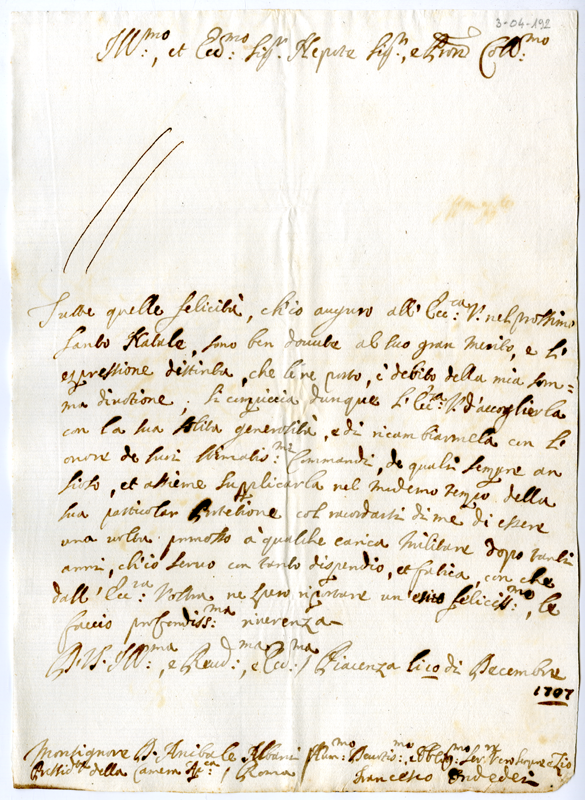 3-04-192
Ill:mo, et Ecc:mo Sig:r Nepote Sig:r, e Pron Coll:mo
Tutte quelle felicità, ch'io auguro all'Ecc:za V. nel prossimo
Santo Natale, sono ben dovute al suo gran merito, e l'
espressione distinta, che le ne porto, è debito della mia som-
ma divotione; si compiaccia dunque l'Ecc:za V. d'accoglierla
con la sua solita generosità, e di ricambiarmela con l'
onore de suoi stimatis:mi Commandi, de quali sempre an
sioso, et assieme supplicarla nel medemo tempo della
sua particolar Protetione col racordarsi di me di essere
una volta promosso à qualche carica Militare dopo tanti
anni, ch'io servo con tanto dispendio, et fatica, con che
dall'Ecc:za Vostra ne spero riportare un esito felicis:mo, le
faccio profondiss:ma riverenza
D. V. Ill:ma, e Reud:ma, e Ecc:ma / Piacenza li 10 di Decembre
1707
Monsignore D. Anibale Albani Hum:mo Deuotis:mo Obblig:mo Ser:re vero Sempre e Zio
Presid:te della Camera Ap:ca / Roma Francesco